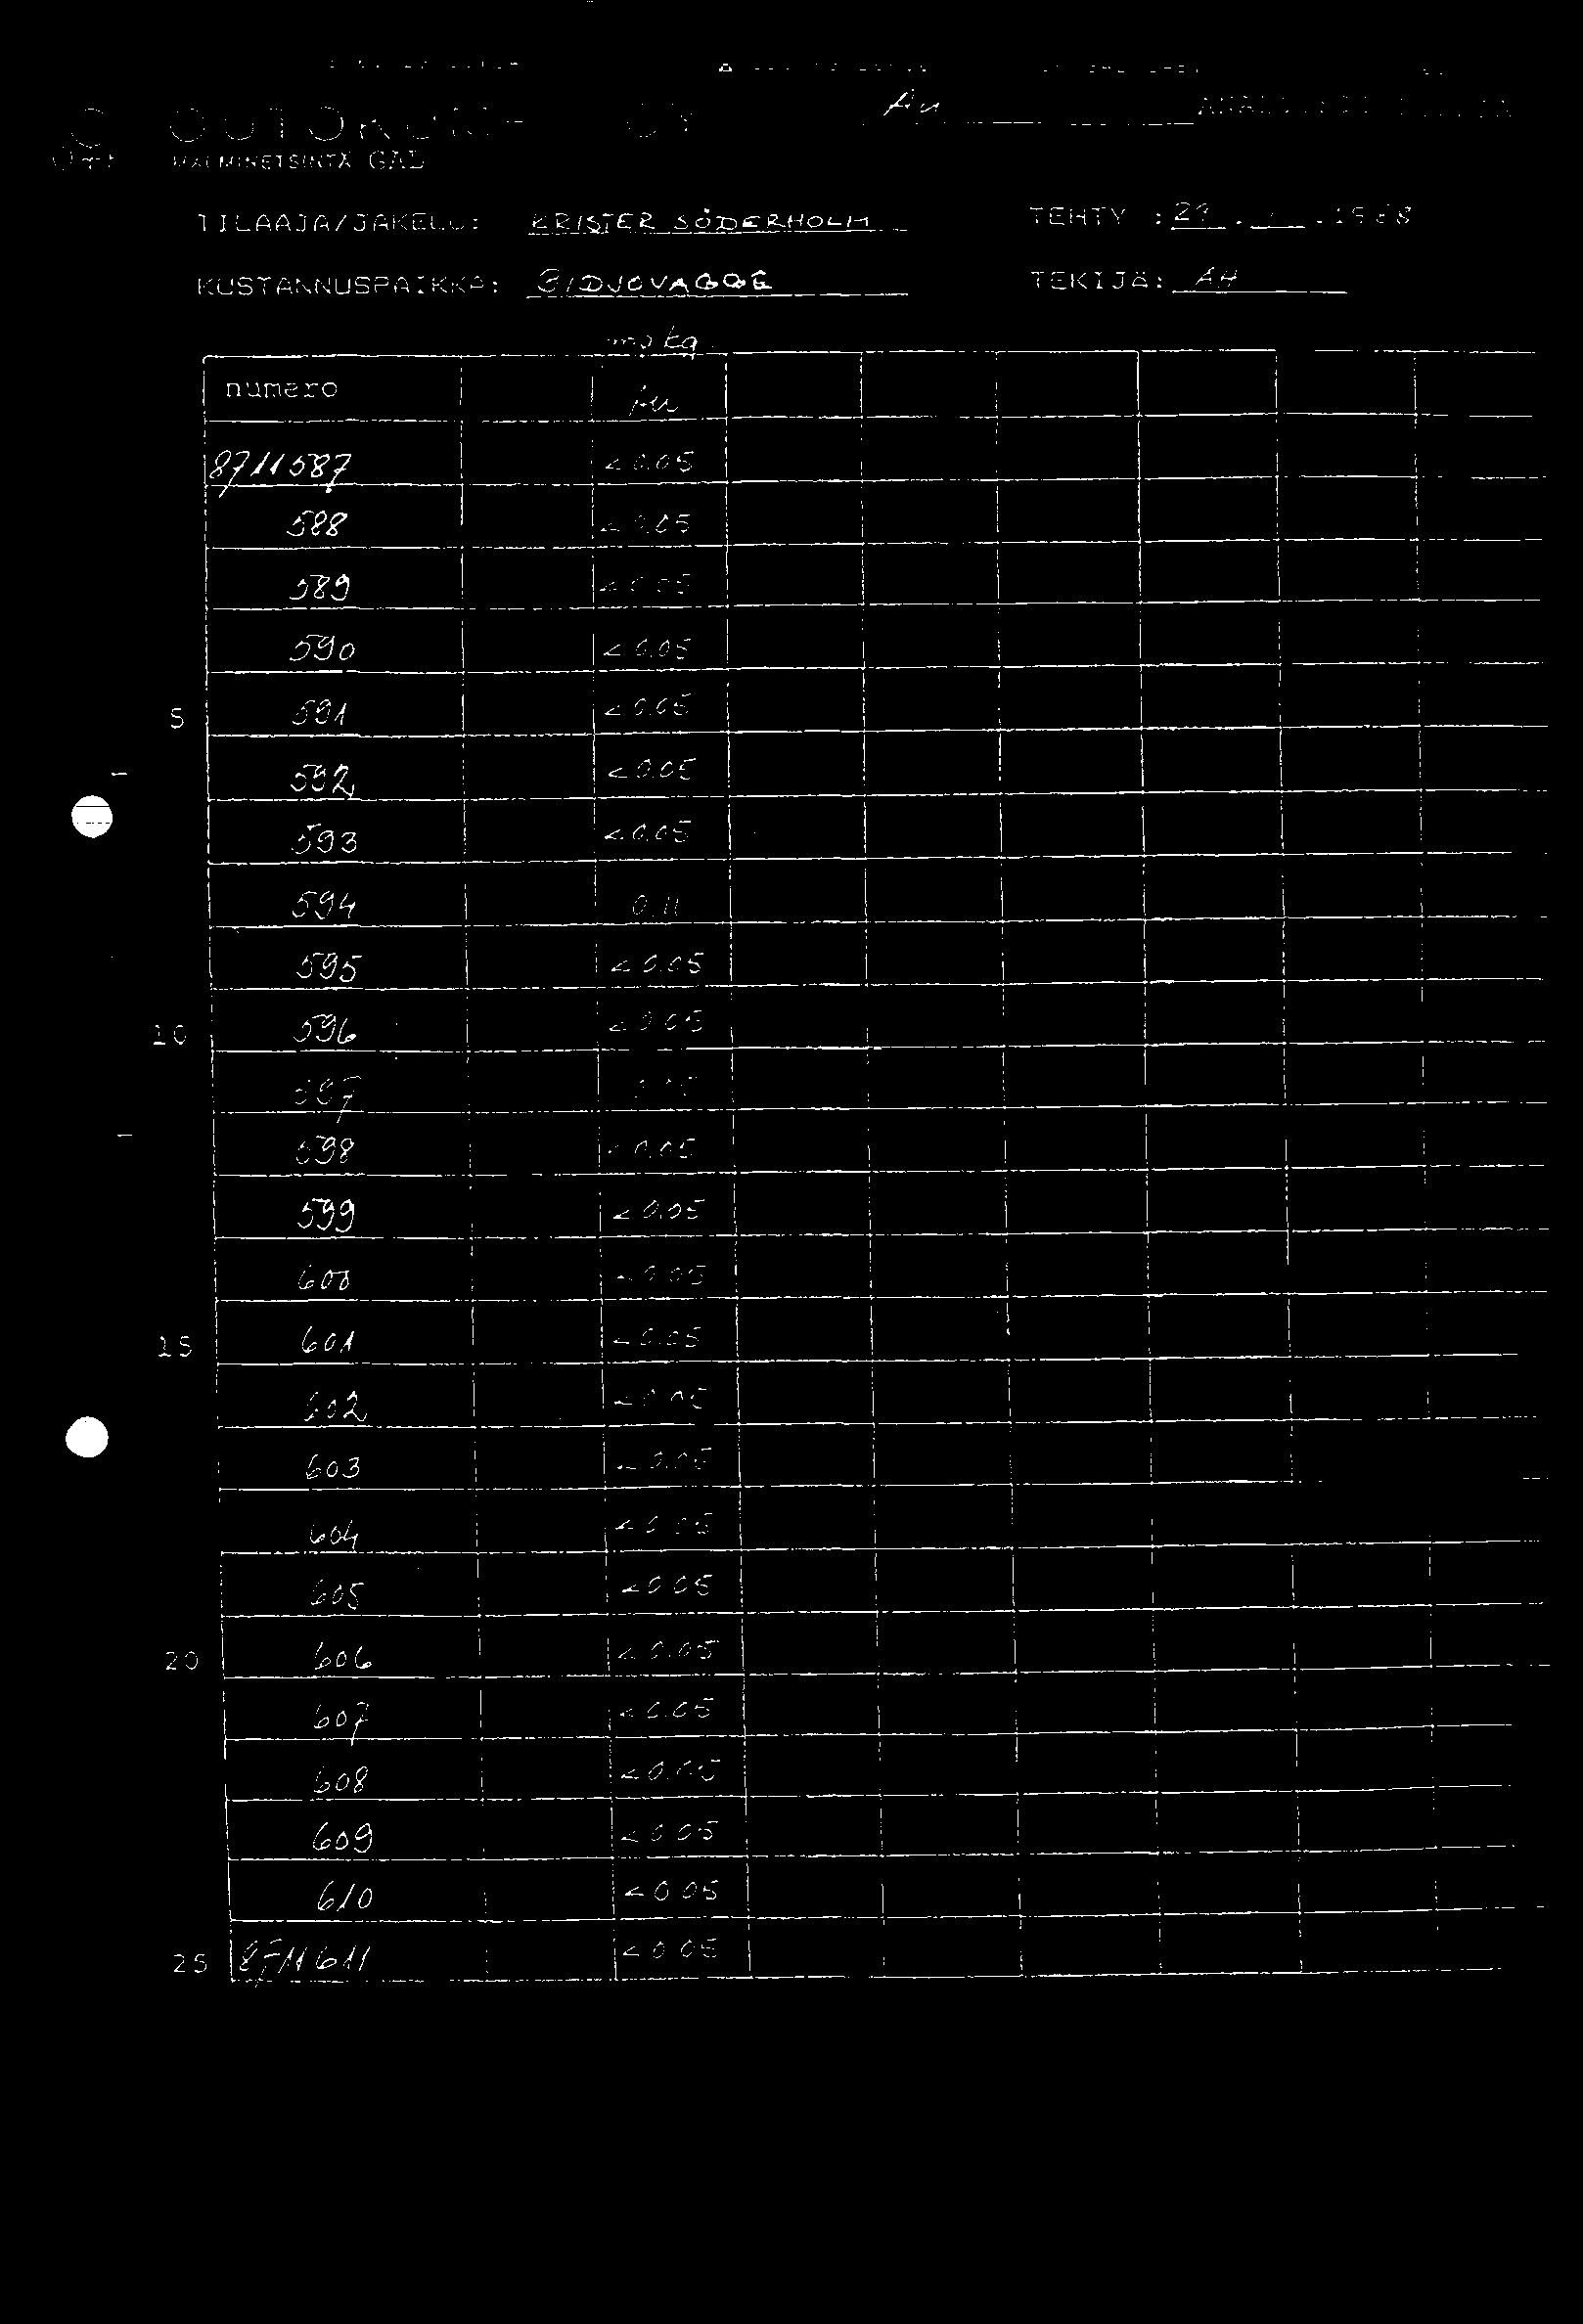 Au
OUTOKUMPU OY
MALMINETSINTÄ GAL
TILAAJA/JAKELU: KRISTER SÖDERHOLM TEHTY : 29. .1988
KUSTANNUSPAIKKA: BIDJOVAGGE TEKIJÄ: AH
mg/kg
numero Au
8711587 <0.05
588 <0.05
589 <0.05
590 <0.05
5 591 <0.05
592 <0.05
593 <0.05
594 0.11
595 <0.05
10 596 <0.05
597
598 <0.05
599 <0.05
600 <0.05
15 601 <0.05
602 <0.05
603 <0.05
604 <0.05
605 <0.05
20 606 <0.05
607 <0.05
608 <0.05
609 <0.05
610 <0.05
25 8711611 <0.05